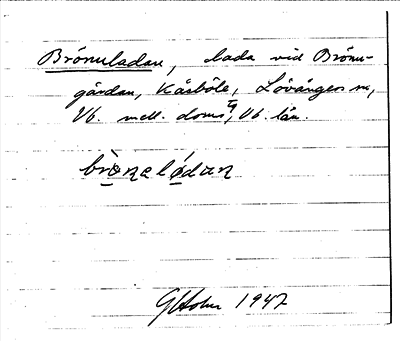 Brönuladan, lada vid Brönu-
gärdan, Kåsböle, Lövångers sn,
Vb. mell. doms, Vb. län.
brònaládan
GHolm 1947